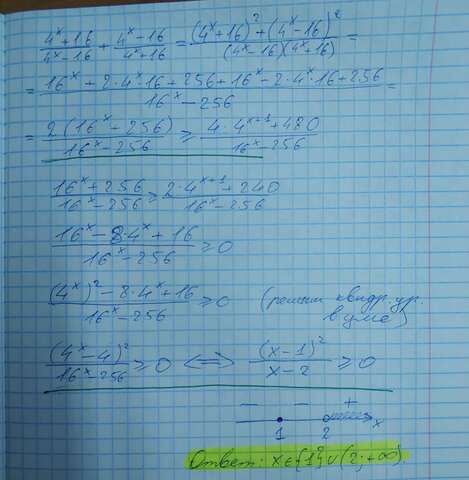 (4^x+16)/(4^x-16) + (4^x-16)/(4^x+16) = ((4^x+16)^2+(4^x-16)^2)/((4^x-16)(4^x+16)) =
= (16^x+2·4^x·16+256+16^x-2·4^x·16+256)/(16^x-256) =
= 2(16^x+256)/(16^x-256) ≥ (4·4^(x+1)+480)/(16^x-256)
(16^x+256)/(16^x-256) ≥ (2·4^(x+1)+240)/(16^x-256)
(16^x-8·4^x+16)/(16^x-256) ≥ 0
((4^x)^2-8·4^x+16)/(16^x-256) ≥ 0 (решим квадр. ур. в уме)
(4^x-4)^2/(16^x-256) ≥ 0 <=> (x-1)^2/(x-2) ≥ 0
- - +
1 2 x
Ответ: x∈{1}∪(2;+∞).